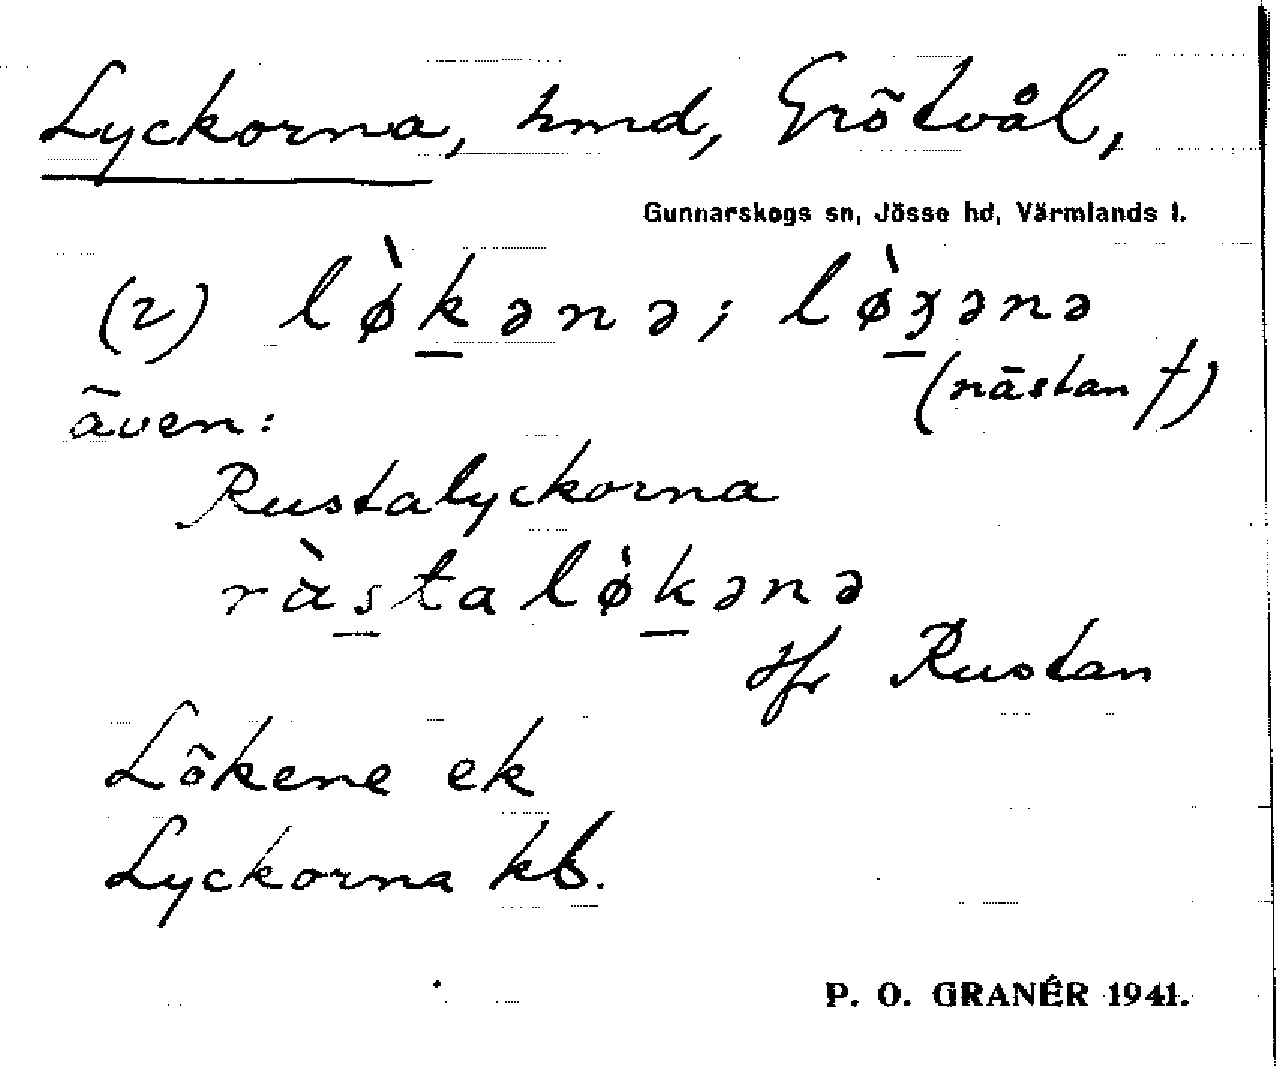 Lyckorna, hmd, Grötvål,
Gunnarskogs sn, Jösse hd, Värmlands l.
(2) lø̀kənə; lø̀ʒənə
(nästan †)
även:
Rustalyckorna
ràstalø̀kənə
jfr Rustan
Lökene ek
Lyckorna kb.
P. O. GRANÉR 1941.